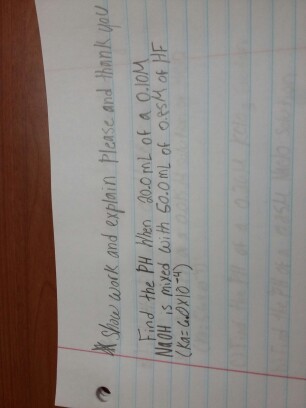 * Show work and explain Please and thank you
Find the PH when 20.0 mL of a 0.10M
NaOH is mixed with 50.0 mL of 0.25M of HF
(Ka=6.0x10-4)